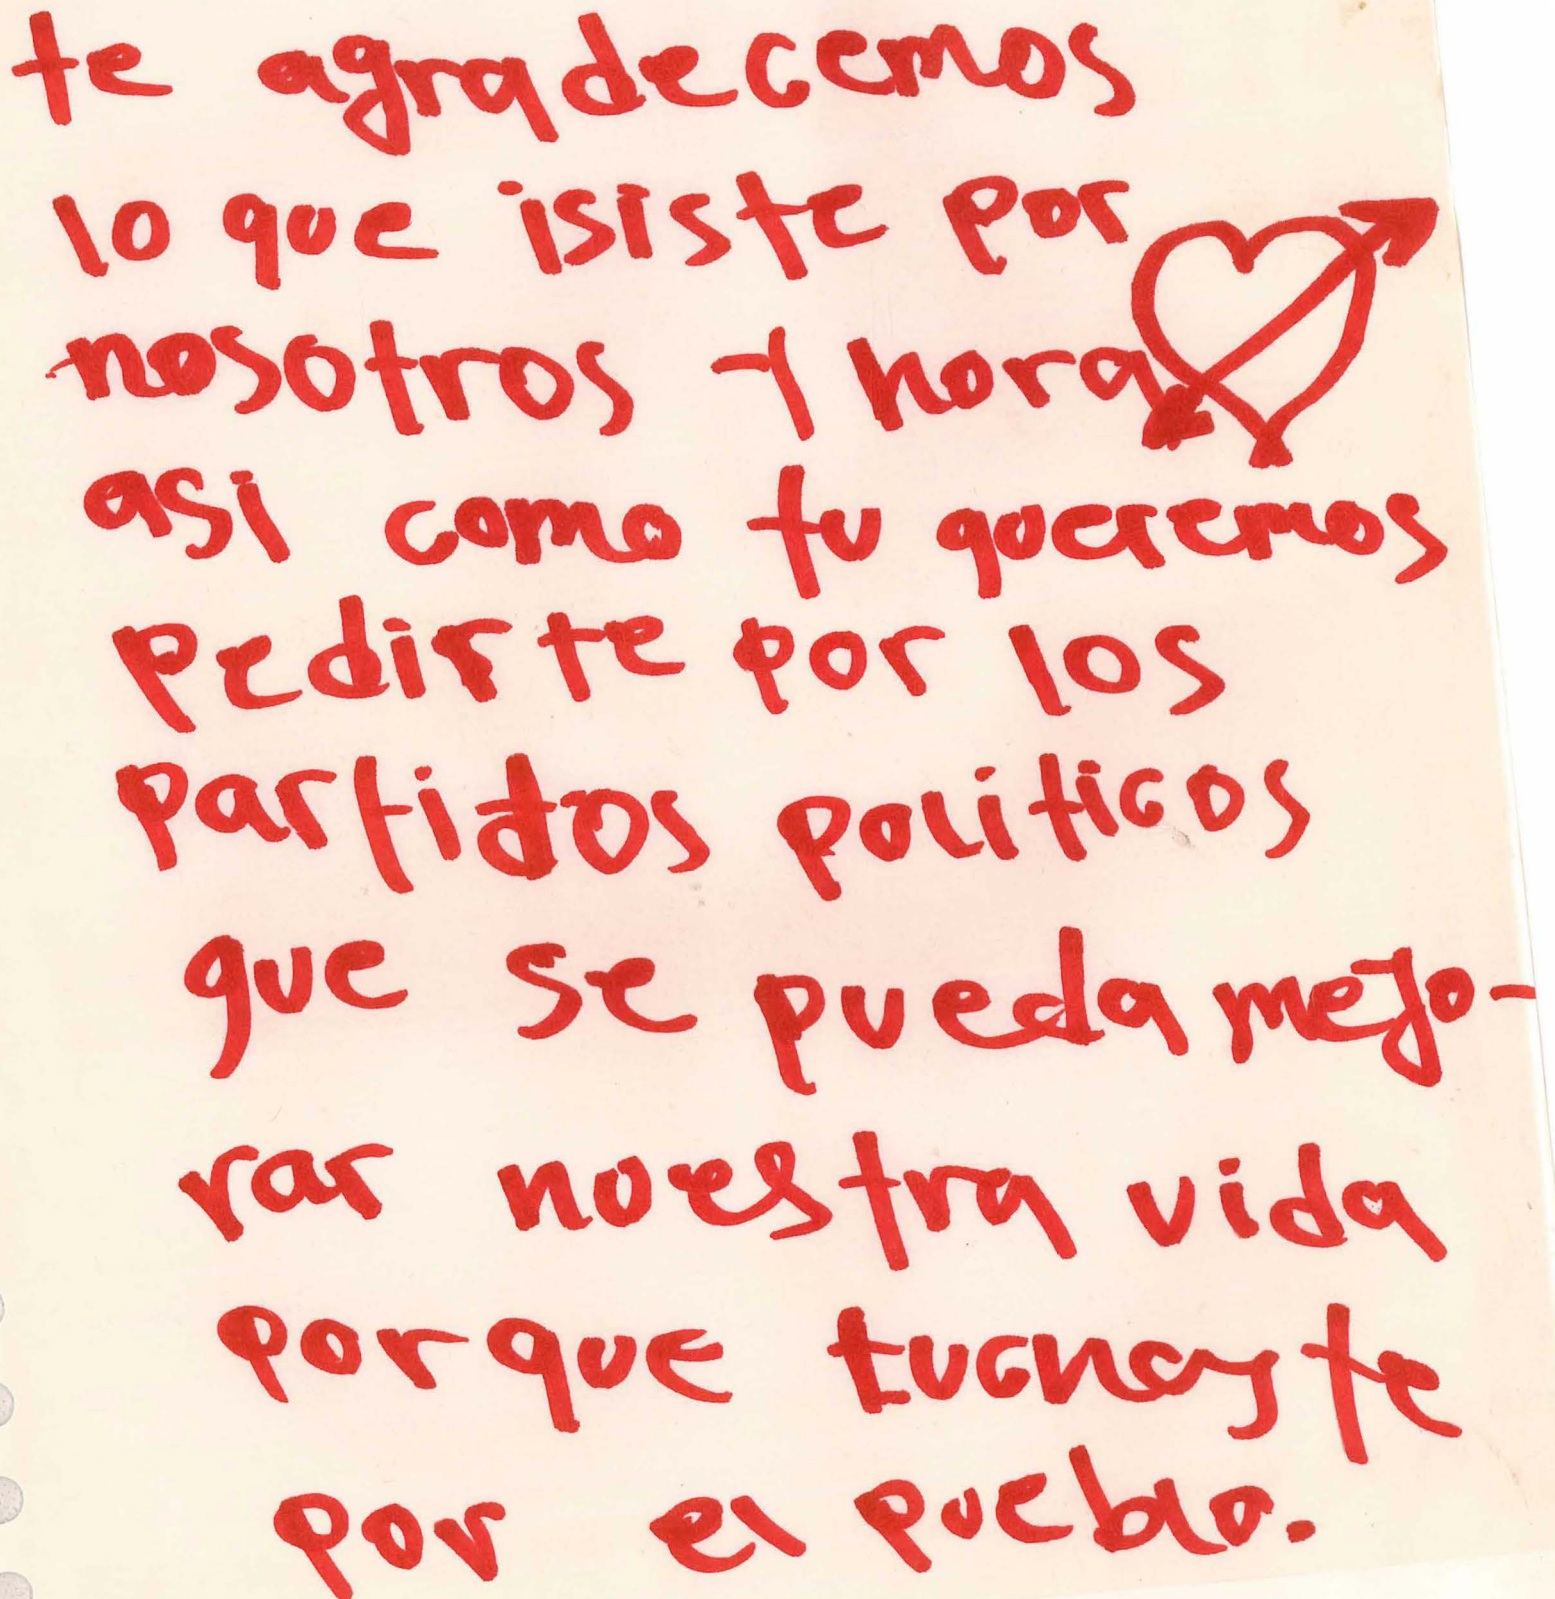 te agradecemos
lo que isiste por
nosotros y hora
asi como tu queremos
pedirte por los
partidos politicos
que se pueda mejo-
rar nuestra vida
porque tucnaste
por el pueblo.